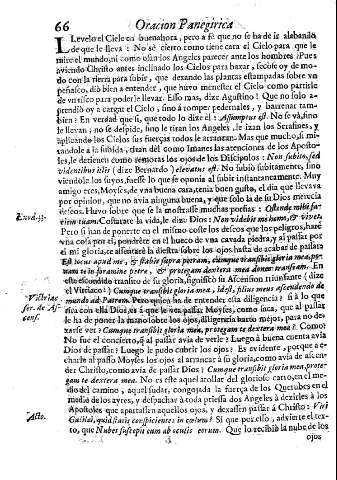 66 Oracion Panegirica
LLevelo el Cielo en buenahora, pero a fè que no se ha de ir alabando
de que le lleva: No sè cierto como tiene cara el Cielo para que le
mire el mundo, ni como osan los Angeles parecer ante los hombres. Pues
aviendo Christo antes inclinado los Cielos para baxar, secose oy de mo-
do con la tierra para subir, que dexando las plantas estampadas sobre vn
peñasco, diò bien a entender, que huvo menester el Cielo como partirle
de vn risco para poderle llevar. Esso mas, dize Agustino? Que no solo a-
prendiò oy a cargar el Cielo, sino à romper pedernales, y barrenar tam-
bien? En verdad que si, que todo lo dize el: Assumptus est. No se và, sino
le llevan; no se despide, sino le tiran los Angeles, le izan los Serafines, y
aplicando los Cielos sus fuerças todos le atraen: Mas que mucho, si mi-
randole a la subida, tiran dèl como Imanes las atenciones de los Aposto-
les, le detienen como remoras los ojos de los Discipulos: Non subito, sed
videntibus illis (dize Bernardo) elevatus est. No subiò subitamente, sino
viendole los suyos, fuesse lo que se oponia al subir instantaneamente. Muy
amigo eres, Moyses, de vna buena cara, tenio buen gusto, el dia que llevava
por opinion, que no avia ninguna buena, y que solo la de Dios merecia
deseos. Huvo sobre que se la mostrasse muchas porfias: Ostende mihi fa-
Exod. 33. ciem tuam. Costarate la vida, le dize Dios: Non videbit me homo, & vivet.
Pero si han de ponerte en el mismo coste los deseos que los peligros, harè
vna cosa por ti, pondrète en el hueco de vna cavada piedra, y al passar por
ti mi gloria, te assistirà la diestra sobre los ojos, hasta de acabar de passar:
Est locus apud me, & stabis supra petram, cumque transibit gloria mea, po-
nam te in foramine petræ, & protegam dextera mea donec transeam. En
este escondido transito de su gloria, significò su Ascension triunfante (dize
Victorin. el Victorino) Cumque transibit gloria mea, idest, filius meus ascendendo de
ser. de As- mundo ad Patrem. Pero quien ha de entender esta diligencia? si à lo que
cens. de ha de poner la mano sobre los ojos, diligencia harto mejor, para no de-
xarse ver? Cumque transibit gloria mea, protegam te dextera mea? Como
No fue el concierto, q̃ al passar avia de verle? Luego à buena cuenta avia
Dios de passar? Luego le pudo cubrir los ojos? Es evidente, porque a e-
charle al passo Moyses los ojos al arrancar à su gloria, como avia de ascen-
der Christo, como avia de passar Dios? Cumque transibit gloria mea, prote-
gam te dextera mea. No es este aquel arrollar del glorioso carro, en el me-
dio del camino, aquel sudar, congojada la fuerça de los Querubes en el
medio de los ayres, y despachar à toda priessa dos Angeles à dezirles à los
Apostoles que apartassen aquellos ojos, y dexassen passar à Christo: Viri
Acto. Galilæi, quid statis conspicientes in cœlum? Si que por esso, advierte el tex-
to, que Nubes suscepit eum ab oculis eorum. Que lo recibiò la nube de los
ojos